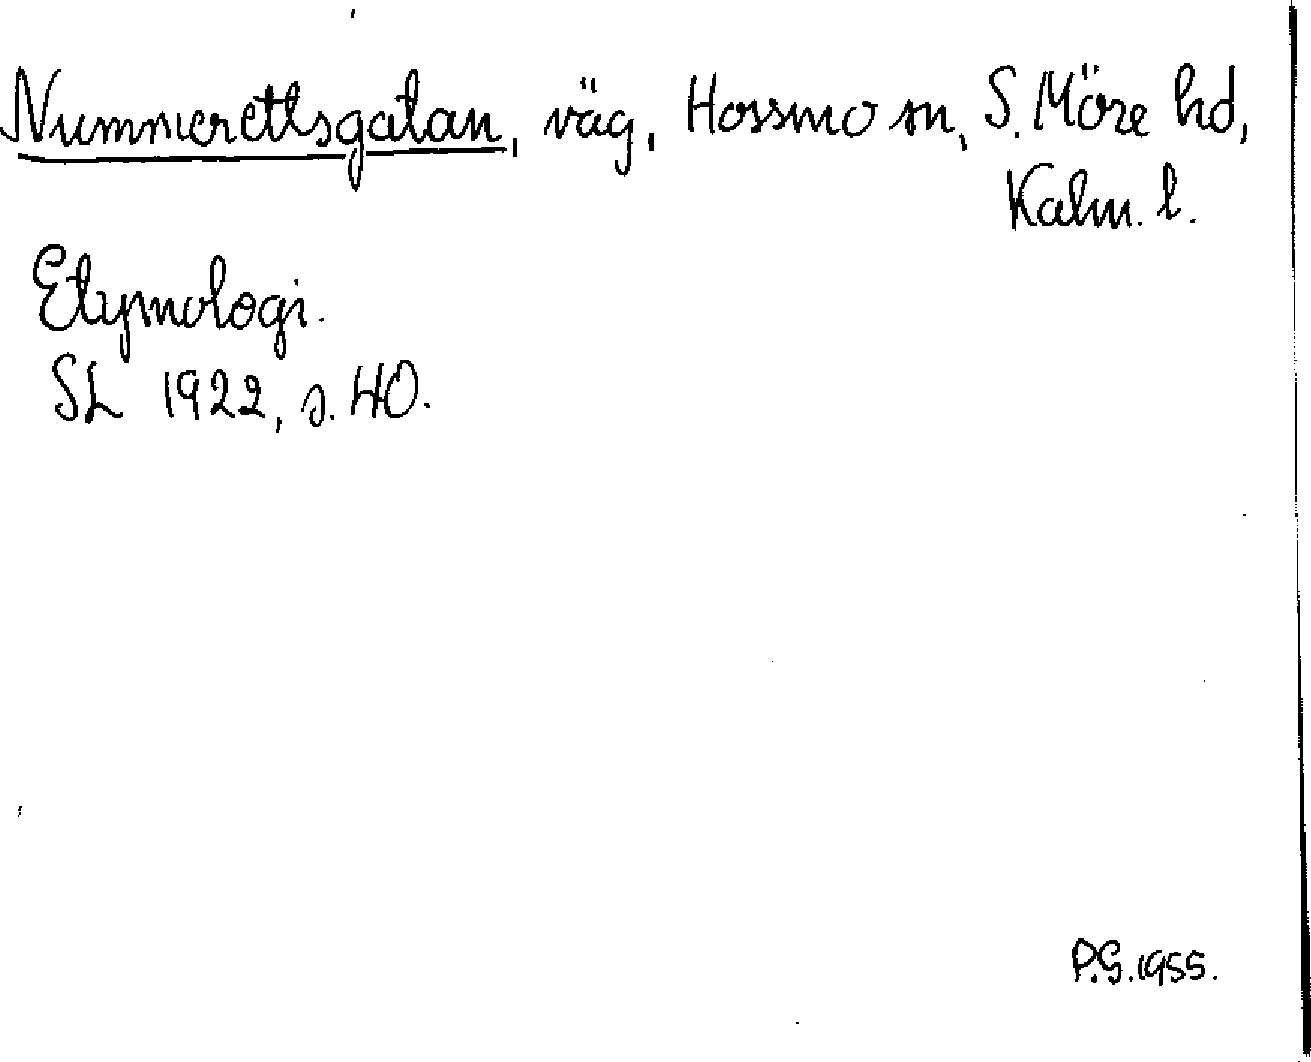 Nummerettsgatan, väg, Hossmo sn, S. Möre hd,
Kalm. l.
Etymologi.
SL 1922, s. 40.
P.G. 1955.